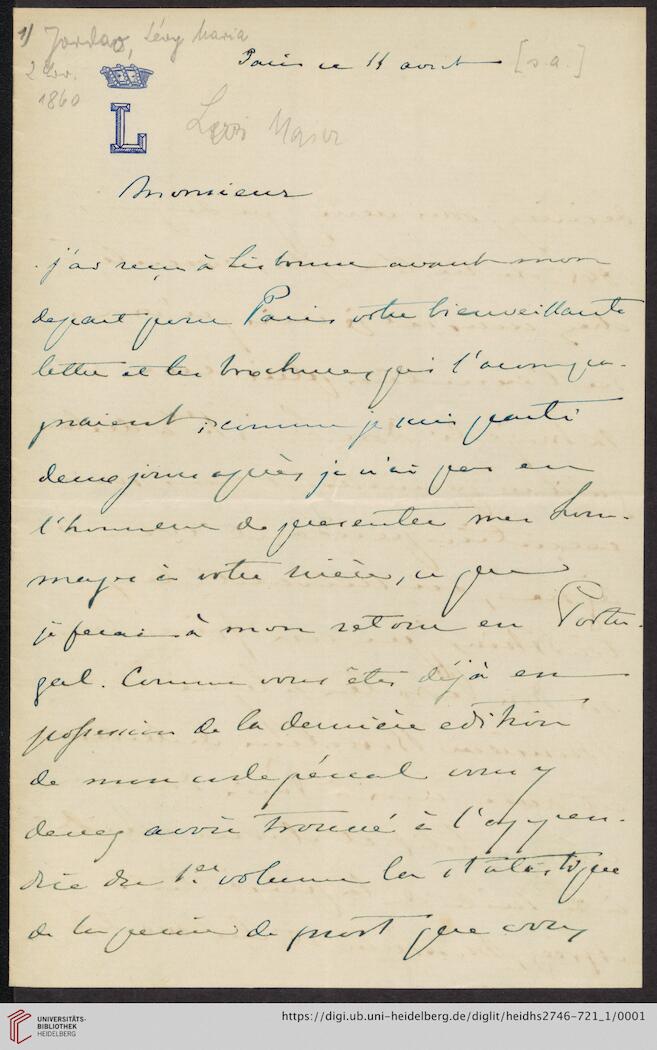 1) Jordao, Lévy Maria
2 Br.
1860
L
Paris ce 14 avril [s.a.]
Monsieur
j'ai reçu à Lisbonne avant mon
depart pour Paris votre bienveillante
lettre et les brochures qui l'accompa-
gnaient ; comme je suis parti
deux jours après je n'ai pas eu
l'honneur de presenter mes hom-
mages à votre nièce, ce que
je ferai à mon retour en Portu-
gal. Comme vous êtes déjà en
possession de la dernière edition
de mon code pénal vous y
devez avoir trouvé à l'appen-
dice du 1er volume la statistique
de la peine de mort que vous
UNIVERSITÄTS-
BIBLIOTHEK
HEIDELBERG
https://digi.ub.uni-heidelberg.de/diglit/heidhs2746-721_1/0001